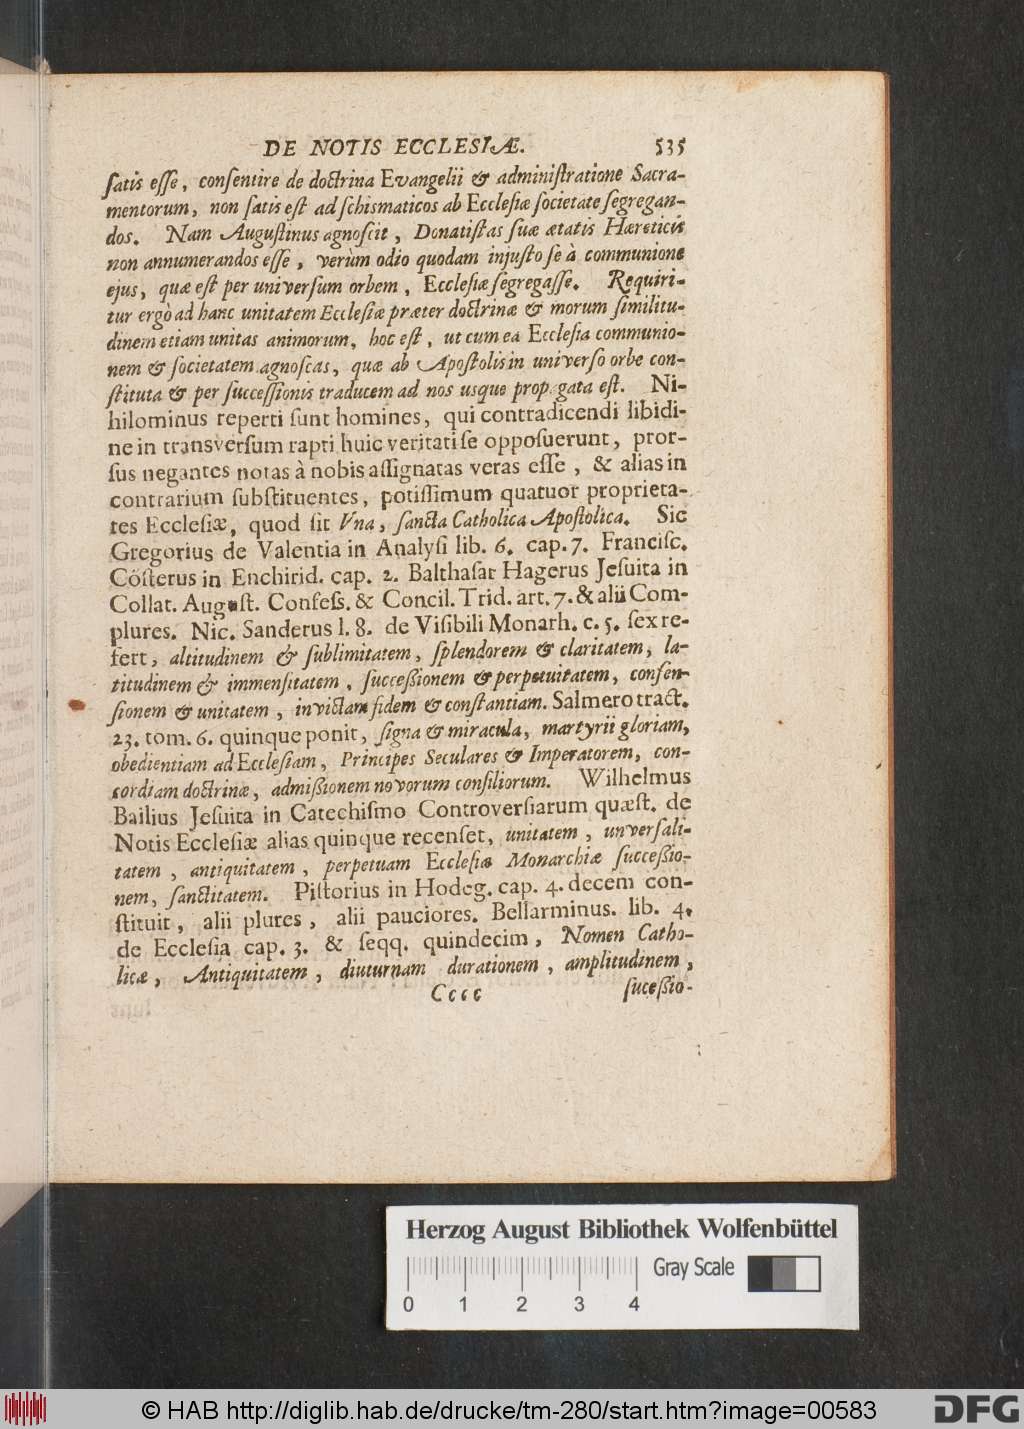 DE NOTIS ECCLESIÆ. 535
ſatis eſſe, conſentire de doctrina Evangelii & adminiſtratione Sacra-
mentorum, non ſatis eſt ad ſchismaticos ab Eccleſiæ ſocietate ſegregan-
dos. Nam Auguſtinus agnoſcit, Donatiſtas ſuæ ætatis Hæreticis
non annumerandos eſſe, verùm odio quodam injuſto ſe à communione
ejus, quæ eſt per univerſum orbem, Eccleſiæ ſegregaſſe. Requiri-
tur ergò ad hanc unitatem Eccleſiæ præter doctrinæ & morum ſimilitu-
dinem etiam unitas animorum, hoc eſt, ut cum ea Eccleſia communio-
nem & ſocietatem agnoſcas, quæ ab Apoſtolis in univerſo orbe con-
ſtituta & per ſucceſſionis traducem ad nos usque propagata eſt. Ni-
hilominus reperti ſunt homines, qui contradicendi libidi-
ne in transverſum rapti huic veritati ſe oppoſuerunt, pror-
ſus negantes notas à nobis aſſignatas veras eſſe, & alias in
contrarium ſubſtituentes, potiſſimum quatuor proprieta-
tes Eccleſiæ, quod ſit Vna, ſancta Catholica Apoſtolica. Sic
Gregorius de Valentia in Analyſi lib. 6. cap. 7. Franciſc.
Cöſterus in Enchirid. cap. 2. Balthaſar Hagerus Jeſuita in
Collat. Auguſt. Confeſs. & Concil. Trid. art. 7. & alii Com-
plures. Nic. Sanderus l. 8. de Viſibili Monarh. c. 5. ſex re-
fert, altitudinem & ſublimitatem, ſplendorem & claritatem, la-
titudinem & immenſitatem, ſucceßionem & perpetuitatem, conſen-
ſionem & unitatem, invictam fidem & conſtantiam. Salmero tract.
23. tom. 6. quinque ponit, ſigna & miracula, martyrii gloriam,
obedientiam ad Eccleſiam, Principes Seculares & Imperatorem, con-
cordiam doctrinæ, admißionem novorum conſiliorum. Wilhelmus
Bailius Jeſuita in Catechiſmo Controverſiarum quæſt. de
Notis Eccleſiæ alias quinque recenſet, unitatem, unverſali-
tatem, antiquitatem, perpetuam Eccleſiæ Monarchiæ ſucceßio-
nem, ſanctitatem. Piſtorius in Hodeg. cap. 4. decem con-
ſtituit, alii plures, alii pauciores. Bellarminus. lib. 4.
de Eccleſia cap. 3. & ſeqq. quindecim, Nomen Catho-
licæ, Antiquitatem, diuturnam durationem, amplitudinem,
Cccc ſuceßio-
Herzog August Bibliothek Wolfenbüttel
Gray Scale
0 1 2 3 4
© HAB http://diglib.hab.de/drucke/tm-280/start.htm?image=00583
DFG